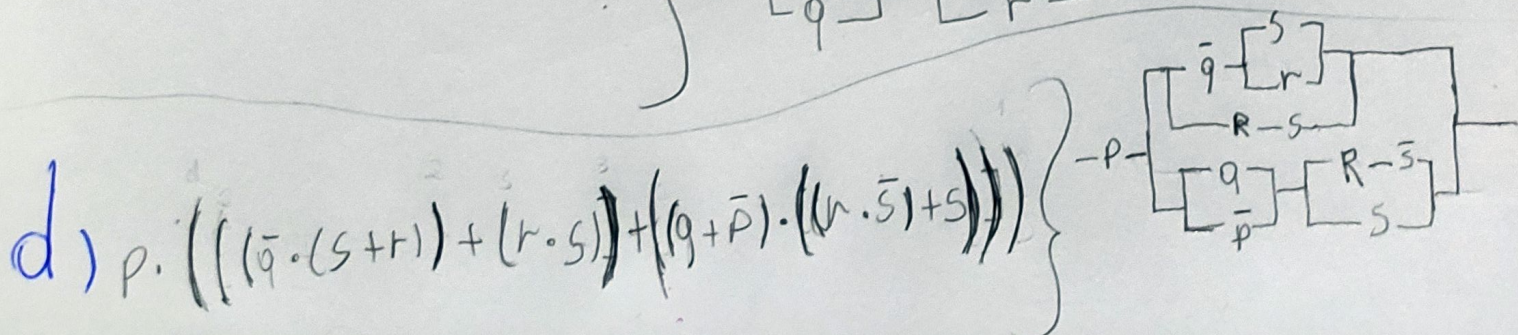 q r
d) p. (((q̄·(s+r))+(r·s))+((q+p̄)·((r·s̄)+s)))) }
-P-
q̄ S r
R-S
q p̄ R-s̄ S